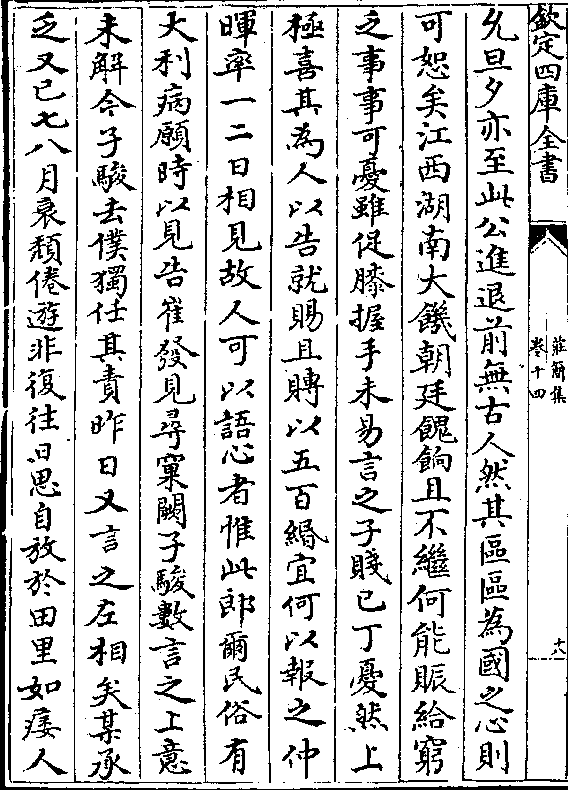 欽定四庫全書
莊簡集
卷十四
十八
允旦夕亦至此公進退前無古人然其區區為國之心則
可恕矣江西湖南大饑朝廷餽餉且不繼何能賑給窮
乏事事可憂雖促膝握手未易言之子賤已丁憂然上
極喜其為人以告就賜且賻以五百緡宜何以報之仲
暉率一二日相見故人可以語心者惟此郎爾民俗有
大利病願時以見告崔發見尋窠闕子駿數言之上意
未解今子駿去僕獨任其責昨日又言之左相矣某承
乏又已七八月衰頹倦遊非復往日思自放於田里如痿人